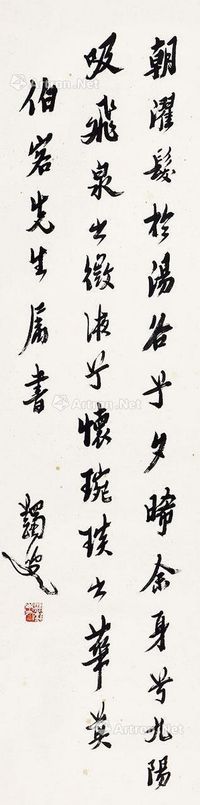 朝濯髮於湯谷兮夕晞余身兮九陽
吸飛泉之微液兮懷琬琰之華英
伯宕先生屬書